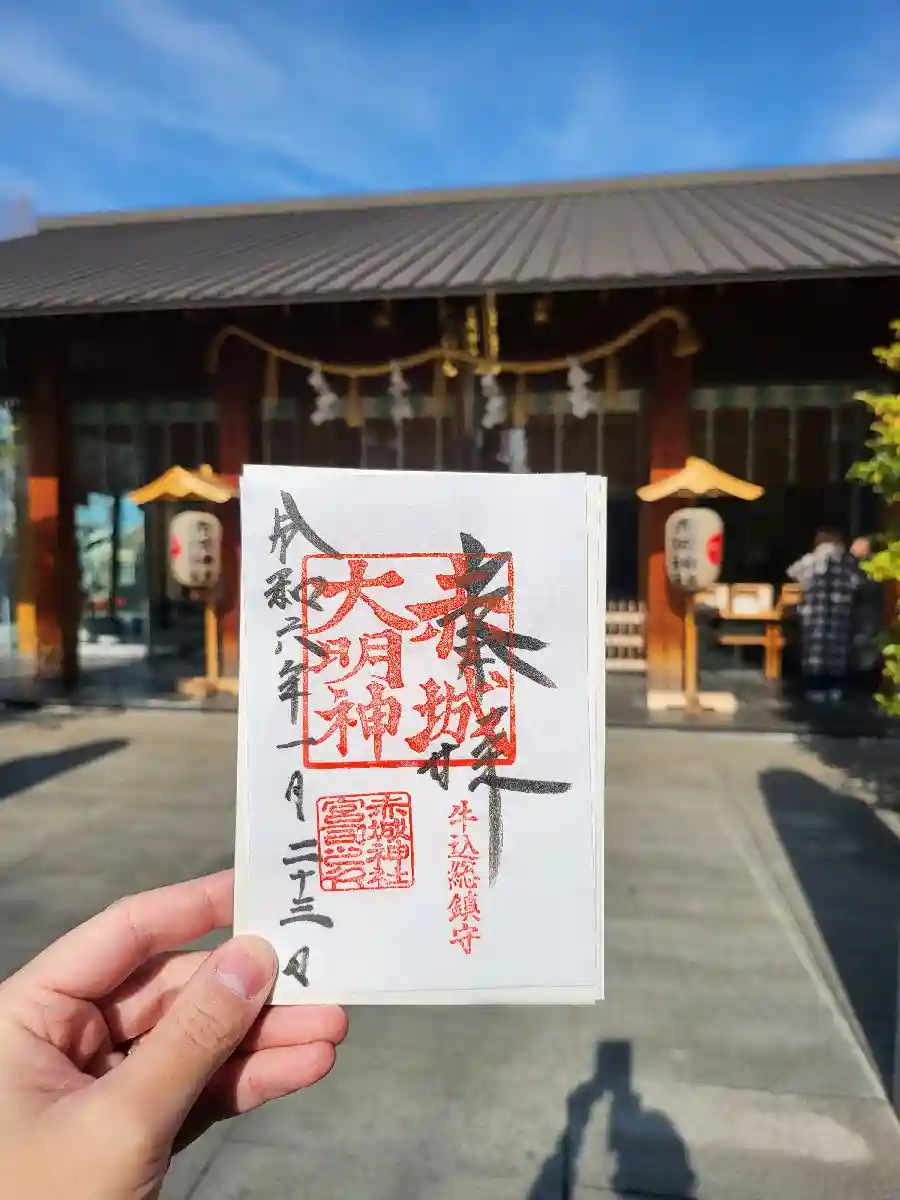 奉拝
赤城
大明神
牛込総鎮守
赤城神社
令和六年一月二十三日
赤城神社